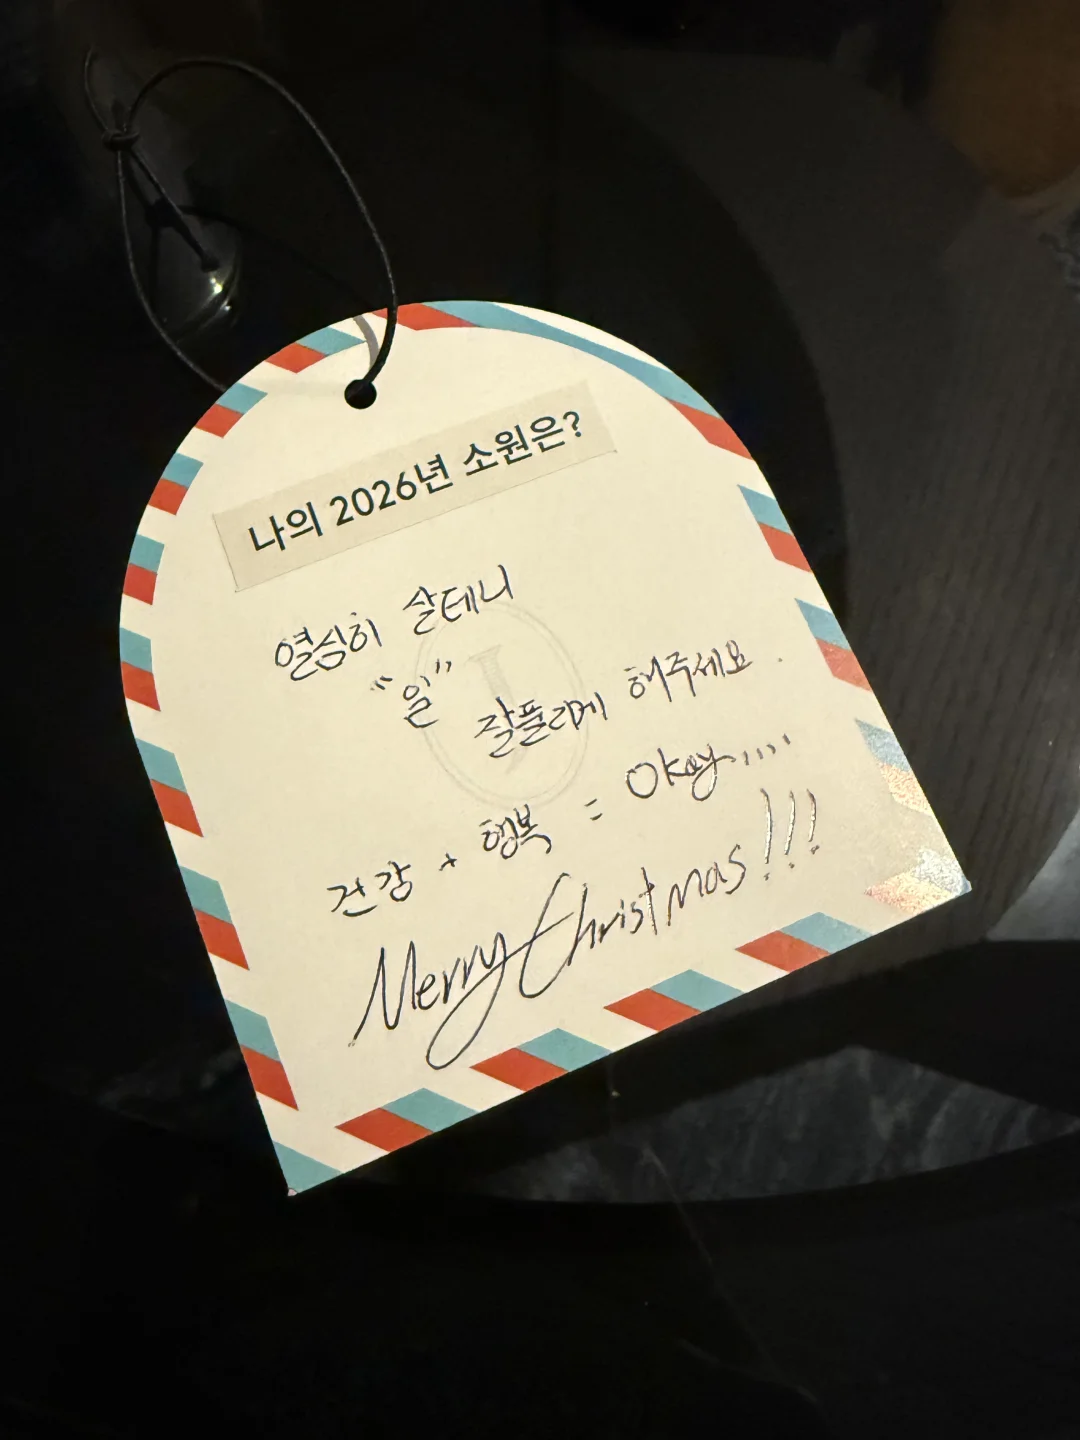 나의 2026년 소원은?
열심히 살테니
"일" 잘풀리게 해주세요.
건강 + 행복 = Okay....
Merry Christmas!!!